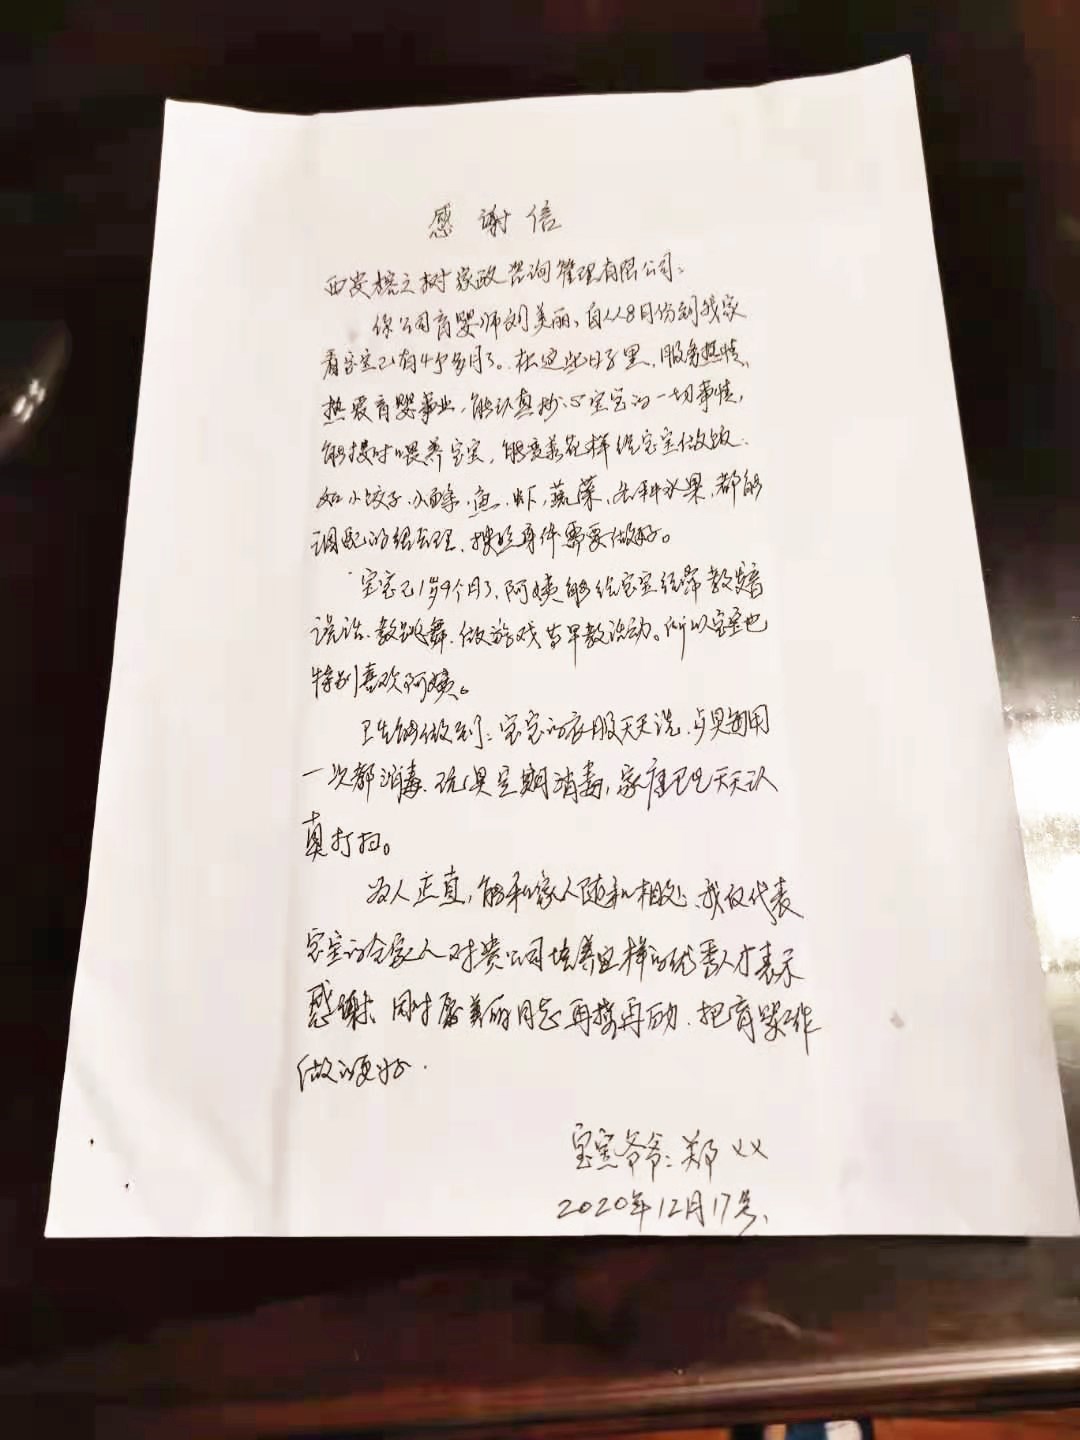 感谢信
西安榕之树家政咨询管理有限公司：
你公司育婴师刘美丽，自从8月份到我家
看宝宝已有4个多月了。在这些日子里，服务热情、
热爱育婴事业，能认真操心宝宝的一切事情，
能按时喂养宝宝，能变着花样给宝宝做饭：
如小饺子、小面条、鱼、虾、蔬菜、各种水果，都能
调配的很合理，按照身体需要做好。
宝宝已1岁9个月了，阿姨能给宝宝经常教发音
说话、教跳舞、做游戏等早教活动。所以宝宝也
特别喜欢阿姨。
卫生能做到：宝宝的衣服天天洗，歺具每用
一次都消毒，玩具定期消毒，家庭卫生天天认
真打扫。
为人正直，能和家人随和相处、我仅代表
宝宝的全家人对贵公司培养这样的优秀人才表示
感谢、同时愿美丽同志再接再励，把育婴工作
做的更好.
宝宝爷爷：郑XX
2020年12月17号、